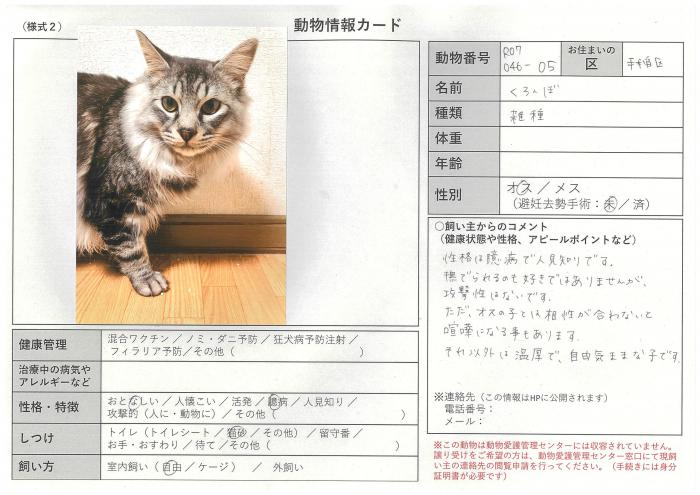 (様式2)
動物情報カード
動物番号 R07 046-05 お住まいの区 手稲区
名前 くろんぼ
種類 雑種
体重
年齢
性別 オス／メス
(避妊去勢手術：未／済)
○飼い主からのコメント
(健康状態や性格、アピールポイントなど)
性格は臆病で人見知りです。
撫でられるのも好きではありませんが、
攻撃性はないです。
ただ、オスの子とは相性が合わないと
喧嘩になる事もあります。
それ以外は温厚で、自由気ままな子です。
※連絡先（この情報はHPに公開されます）
電話番号：
メール：
※この動物は動物愛護管理センターには収容されていません。
譲り受けをご希望の方は、動物愛護管理センター窓口にて現飼
い主の連絡先の閲覧申請を行ってください。（手続きには身分
証明書が必要です）
健康管理 混合ワクチン／ノミ・ダニ予防／狂犬病予防注射／
フィラリア予防／その他（ ）
治療中の病気や
アレルギーなど
性格・特徴 おとなしい／人懐こい／活発／臆病／人見知り／
攻撃的（人に・動物に）／その他（ ）
しつけ トイレ（トイレシート／猫砂／その他）／留守番／
お手・おすわり／待て／その他（ ）
飼い方 室内飼い（自由／ケージ） ／ 外飼い